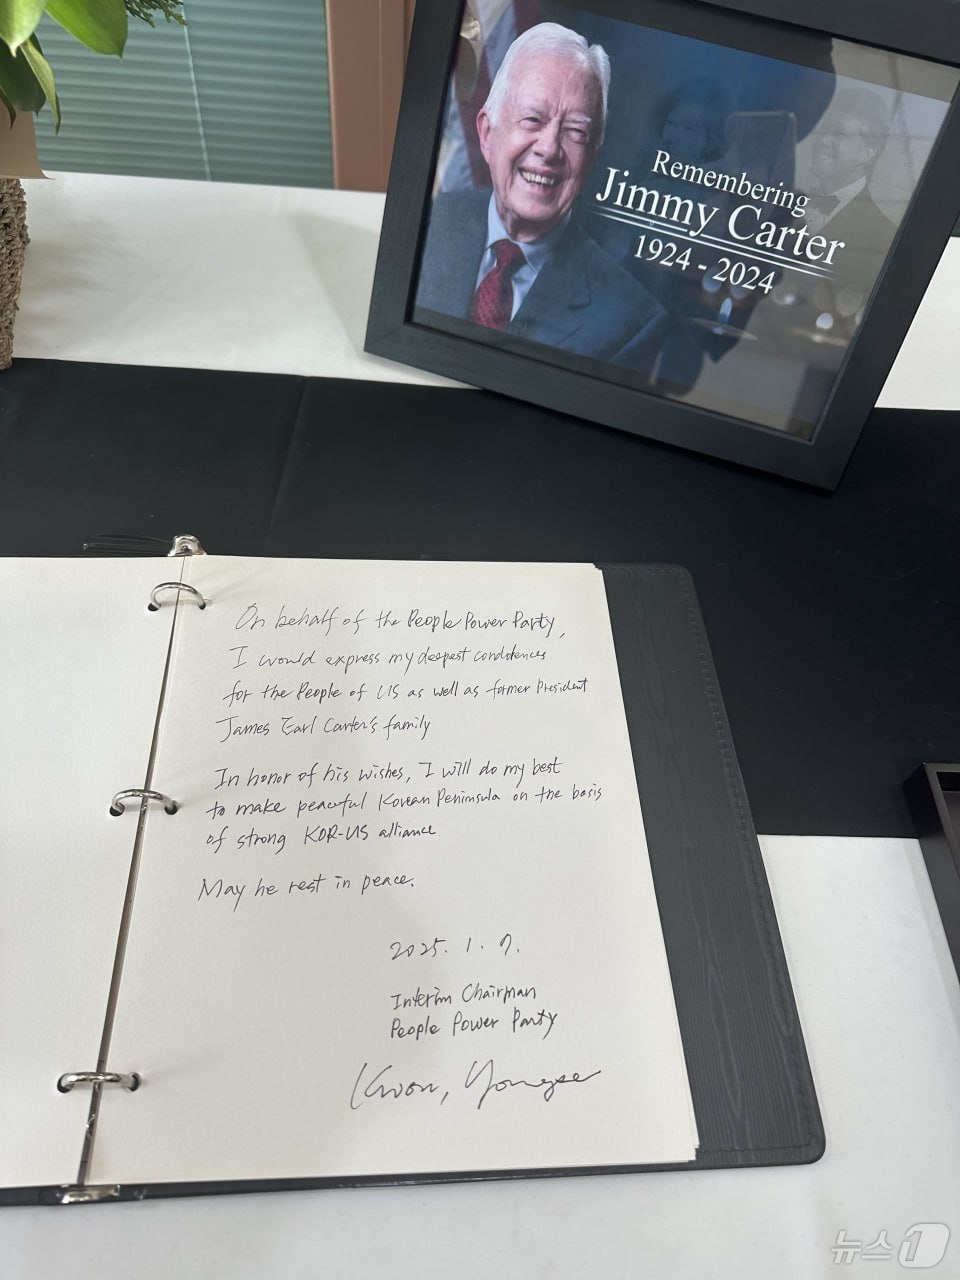 Remembering
Jimmy Carter
1924 - 2024
On behalf of the People Power Party,
I would express my deepest condolences
for the People of US as well as former President
James Earl Carter's family
In honor of his wishes, I will do my best
to make peaceful Korean Peninsula on the basis
of strong KOR-US alliance
May he rest in peace.
2025. 1. 7.
Interim Chairman
People Power Party
Kwon, Youngse
뉴스1